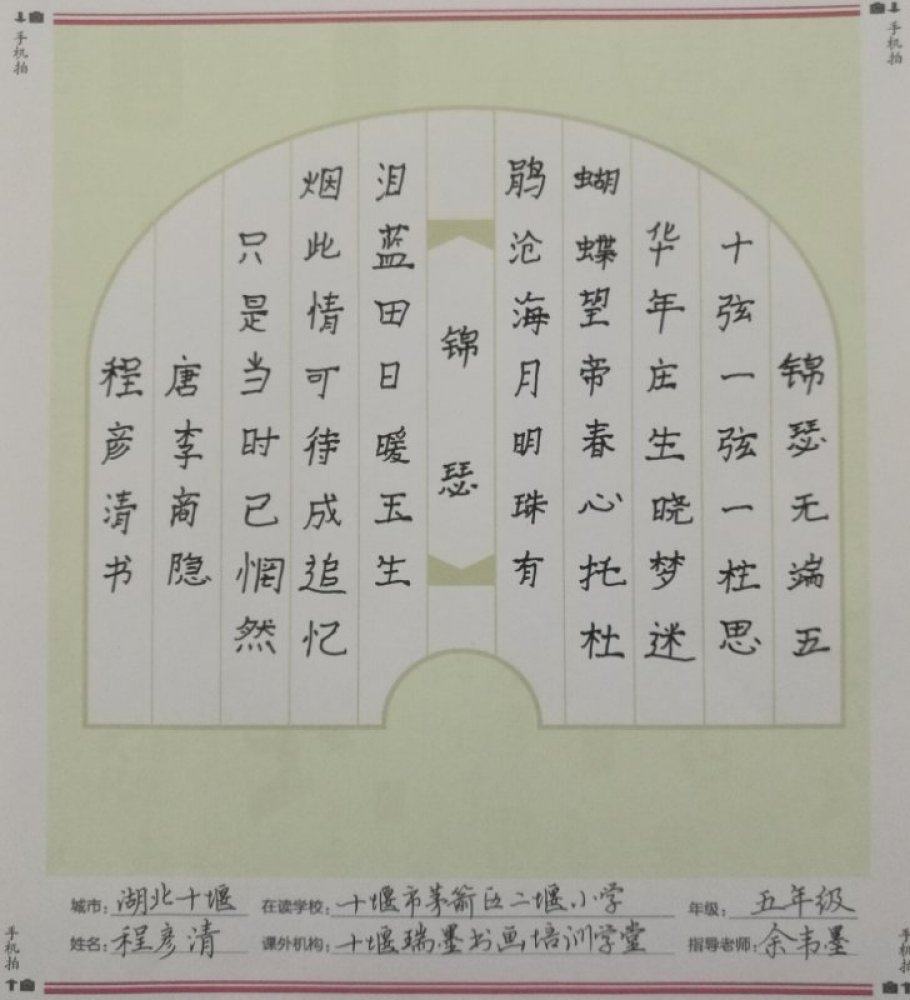 手机拍
手机拍
锦瑟无端五
十弦一弦一柱思
华年庄生晓梦迷
蝴蝶望帝春心托杜
鹃沧海月明珠有
锦瑟
泪蓝田日暖玉生
烟此情可待成追忆
只是当时已惘然
唐李商隐
程彦清书
城市：湖北十堰 在读学校：十堰市茅箭区二堰小学 年级：五年级
姓名：程彦清 课外机构：十堰瑞墨书画培训学堂 指导老师：余韦墨
手机拍
手机拍